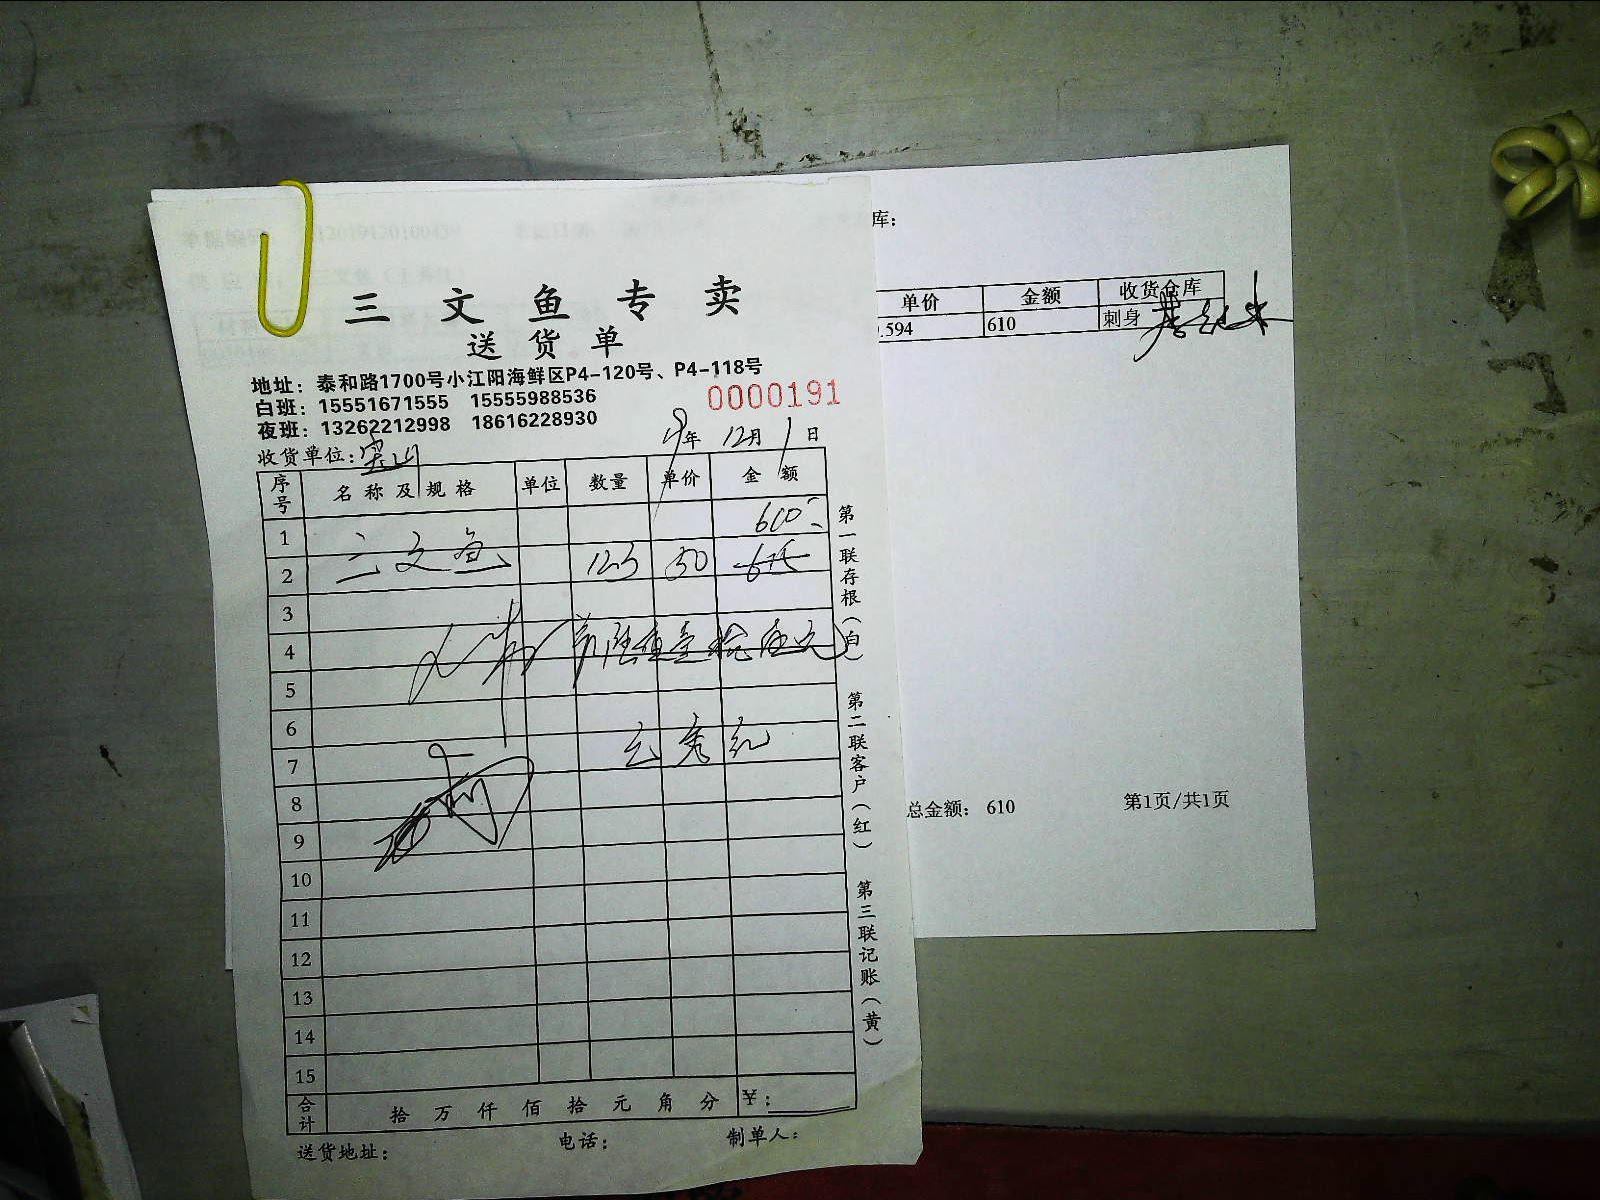 三文鱼专卖
送货单
地址：泰和路1700号小江阳海鲜区P4-120号、P4-118号
白班：15551671555 15555988536
夜班：13262212998 18616228930
0000191
收货单位：
19年 12月 1日
序号 名称及规格 单位 数量 单价 金额
1 610
2 三文鱼 12.5 50 625
3
4
5
6
7
8
9
10
11
12
13
14
15
合计 拾 万 仟 佰 拾 元 角 分 ¥：
送货地址： 电话： 制单人：
第一联存根（白）
第二联客户（红）
第三联记账（黄）
库：
单价 金额 收货仓库
.594 610 刺身
总金额： 610 第1页/共1页